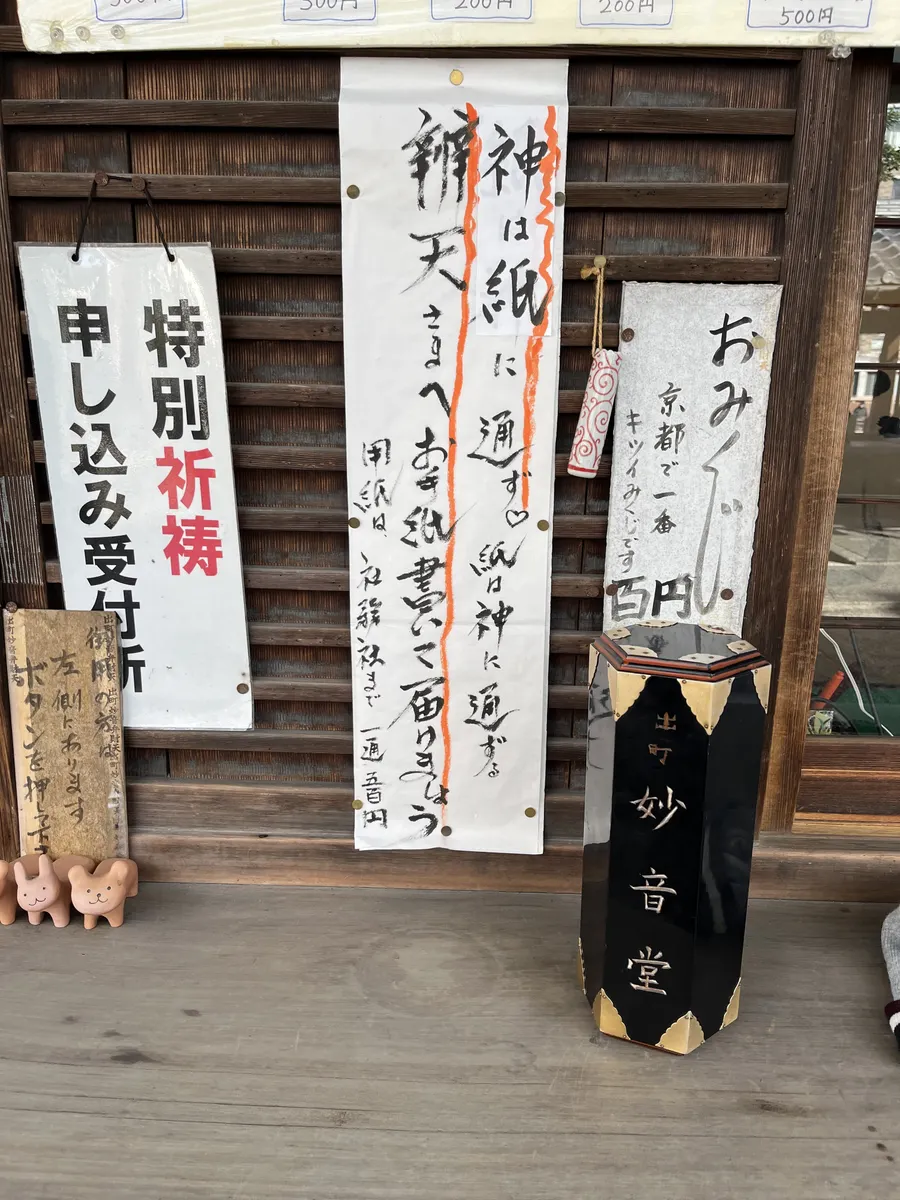 500円
200円
200円
500円
特別祈祷
申し込み受付所
神は紙に通ず♡紙は神に通ずる
辨天さまへお手紙書いて届けましょう
用紙は 社務社まで 一通 五百円
おみくじ
京都で一番
キツイみくじです
百円
出町
妙音堂
左側にあります
ボタンを押し